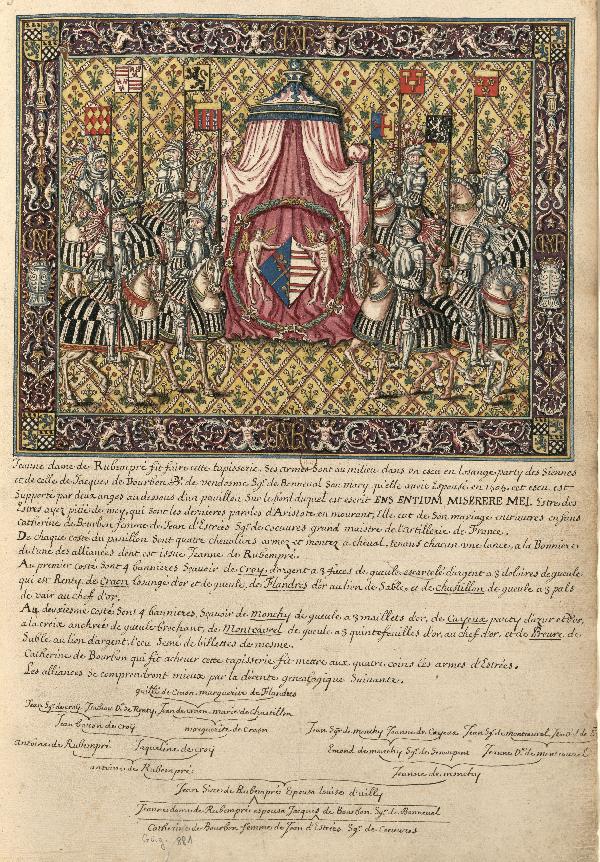 Jeanne dame de Rubempré fit faire cette tapisserie. Ses armes sont au milieu dans un escu en losange party des Siennes
et de celle de Jacques de Bourbon Bd. de vendosme Sgr. de Bonneual Son mary, qu'elle auoit Espousé en 1505. cet escu est
Supporté par deux anges au dessous d'un pauillon Sur le bord duquel est escrit ENS ENTIUM MISERERE MEI. Estre des
Estres ayez pitié de moy, qui sont les dernieres paroles d'Aristote en mourant, Elle eut de Son mariage entr'autres enfans
Catherine de Bourbon femme de Jean d'Estrées Sgr. de Coeuures grand maistre de l'artillerie de France.
De chaque costé du pauillon Sont quatre cheualiers armez et montez a cheual, tenans chacun une lance, a la Banniere
de l'une des alliances dont est issue Jeanne de Rubempré.
Au premier costé Sont 4 bannieres Scauoir de Croy, d'argent a 3 fáces de gueule escartelé d'argent a 3 doloires de gueule
qui est Renty, de Craon losangé d'or et de gueule, de Flandres d'or au lion de Sable, et de chastillon de gueule a 3 pals
de vair au chef d'or.
Au deuxiéme costé Sont 4 bannieres, Scauoir de Monchy de gueule a 3 maillets d'or, de Cayeux party d'azur et d'or,
a la croix anchrée de gueule brochant, de Montcaurel de gueule a 3 quintefeuilles d'or, au chef d'or, et de Preure, de
Sable au lion d'argent l'ecu Semé de billettes de mesme.
Catherine de Bourbon qui fit acheuer cette tapisserie fit mettre aux quatre coins les armes d'Estrées.
Les alliances Se comprendront mieux par la d'ente genealogique Suiuante.
guille. de Craon, marguerite de Flandres
Jean Sgr. de croy, Jeanne De. de Renty, Jean de craon, marie de chastillon
Jean baron de croy marguerite de craon Jean Sgr. de monchy Jeanne de Cayeux Jean Sgr. de montcaurel,
antoine de Rubempré Jaqueline de croy Emond de monchy Sgr. de Senarpont Jeanne De. de montcaurel
antoine de Rubempré Jeanne de monchy
Jean Sire de Rubempré Espousa Louise d'ailly
Jeanne dame de Rubempré espousa Jacques de Bourbon Sgr. de Bonneual
Catherine de Bourbon femme de Jean d'Estrées Sgr. de Coeuures
Gaig. 881